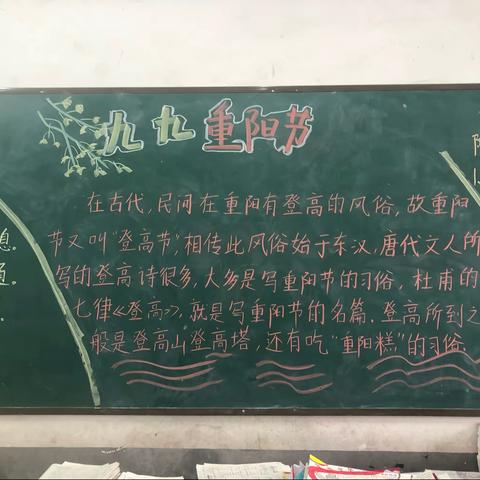 九九重阳节
在古代,民间在重阳有登高的风俗,故重阳
节又叫“登高节”,相传此风俗始于东汉,唐代文人所
写的登高诗很多,大多是写重阳节的习俗,杜甫的
七律《登高》,就是写重阳节的名篇.登高所到之
般是登高山登高塔,还有吃“重阳糕”的习俗.